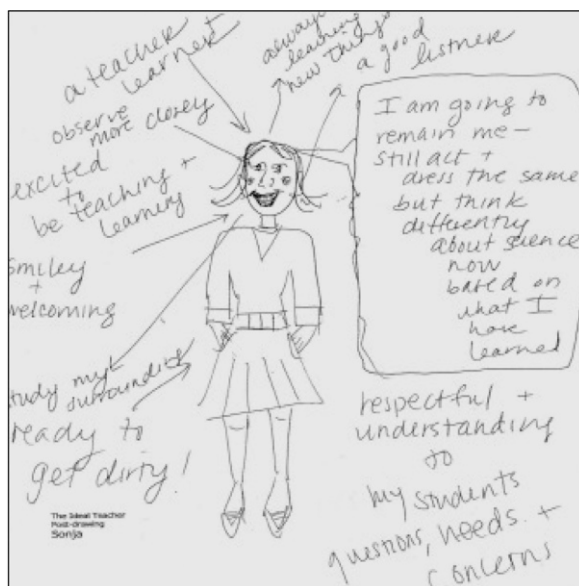 a teacher
learner
always
learning
new things
a good
listner
observe
more closely
excited
to
be teaching +
learning
smiley
+
welcoming
study my
surroundings
ready to
get dirty!
I am going to
remain me —
still act +
dress the same
but think
differently
about science
now
based on
what I
have
learned
respectful +
understanding
to
my students
questions, needs +
concerns
The Ideal Teacher
Post-drawing
Sonja